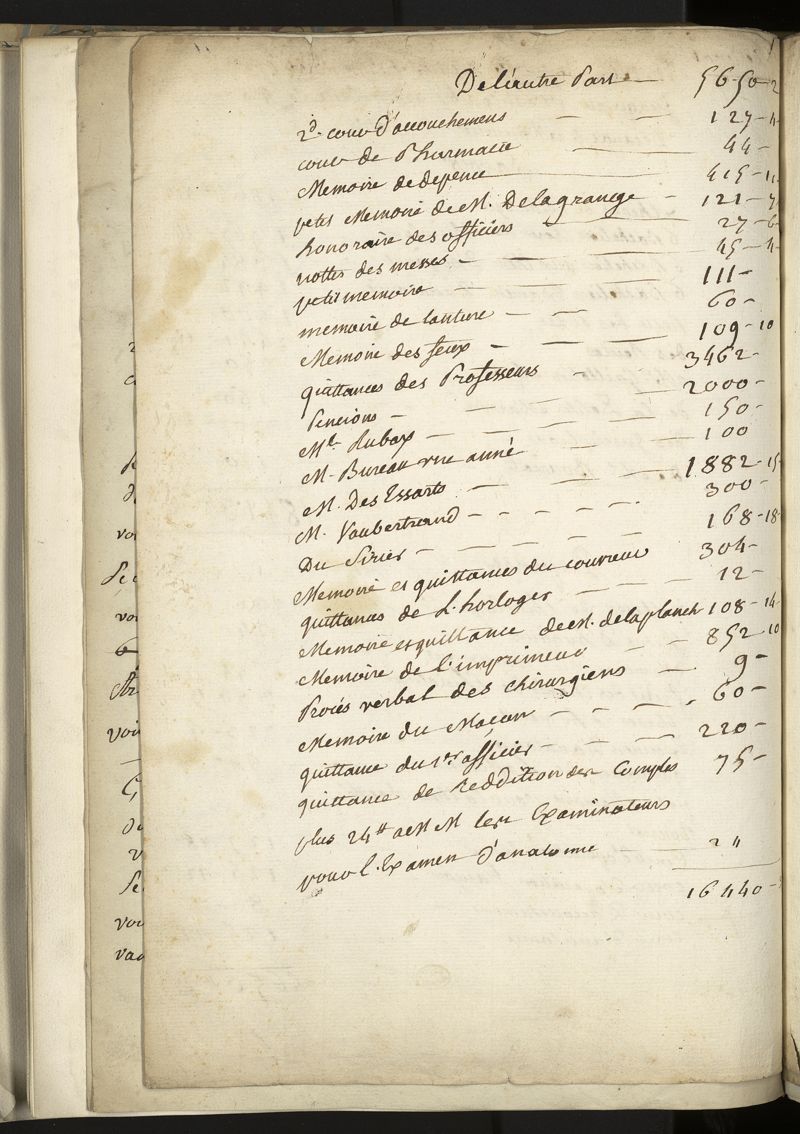 De l'autre Part — 5650 - 2
2d. cour d'accouchemens — — 127 - 4
cour de Pharmacie — 44 -
Memoire de depence — 415 - 11
petit Memoire de M. Delagrange - 121 - 7
honoraire des officiers — 27 - 6
nottes des messes - — — 45 - 4
petit memoire — — — 111 -
memoire de — — 60 -
Memoire des feux - — — 109 - 10
quittances des Professeurs - — 3462 -
Pencions - — — 2000 -
Mlle Rubax — — — 150 -
M. Bureau une année — — 100
M. Des Essarts — — — 1882 - 15
M. Vaubertrand - - - - - 300 -
Du Sirier - — — — 168 - 18
Memoire et quittances du couvreur 304 -
quittances de L'horloger — — — 12 -
Memoire et quittance de M. delaplanch 108 - 14
Memoire de l'imprimeur — — 852 - 10
Procés verbal des chirurgiens — 9 -
Memoire du Macon - - - - 60 -
quittance du 1er officier - — — 220 -
quittance de Reddition des Comptes 75 -
plus 24 tt a M M les Examinateurs
pour l'Examen d'anatomie — 24
16440 -